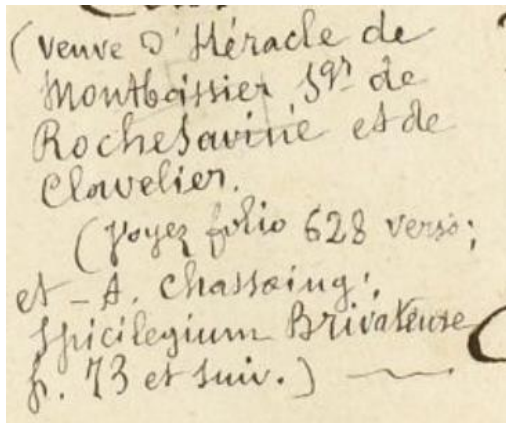 (veuve D'Héracle de
Montboissier, Sgr de
Rochesavine et de
Clavelier.
(Voyez folio 628 verso;
et – A. Chassaing:
Spicilegium Brivatense
p. 73 et suiv.)